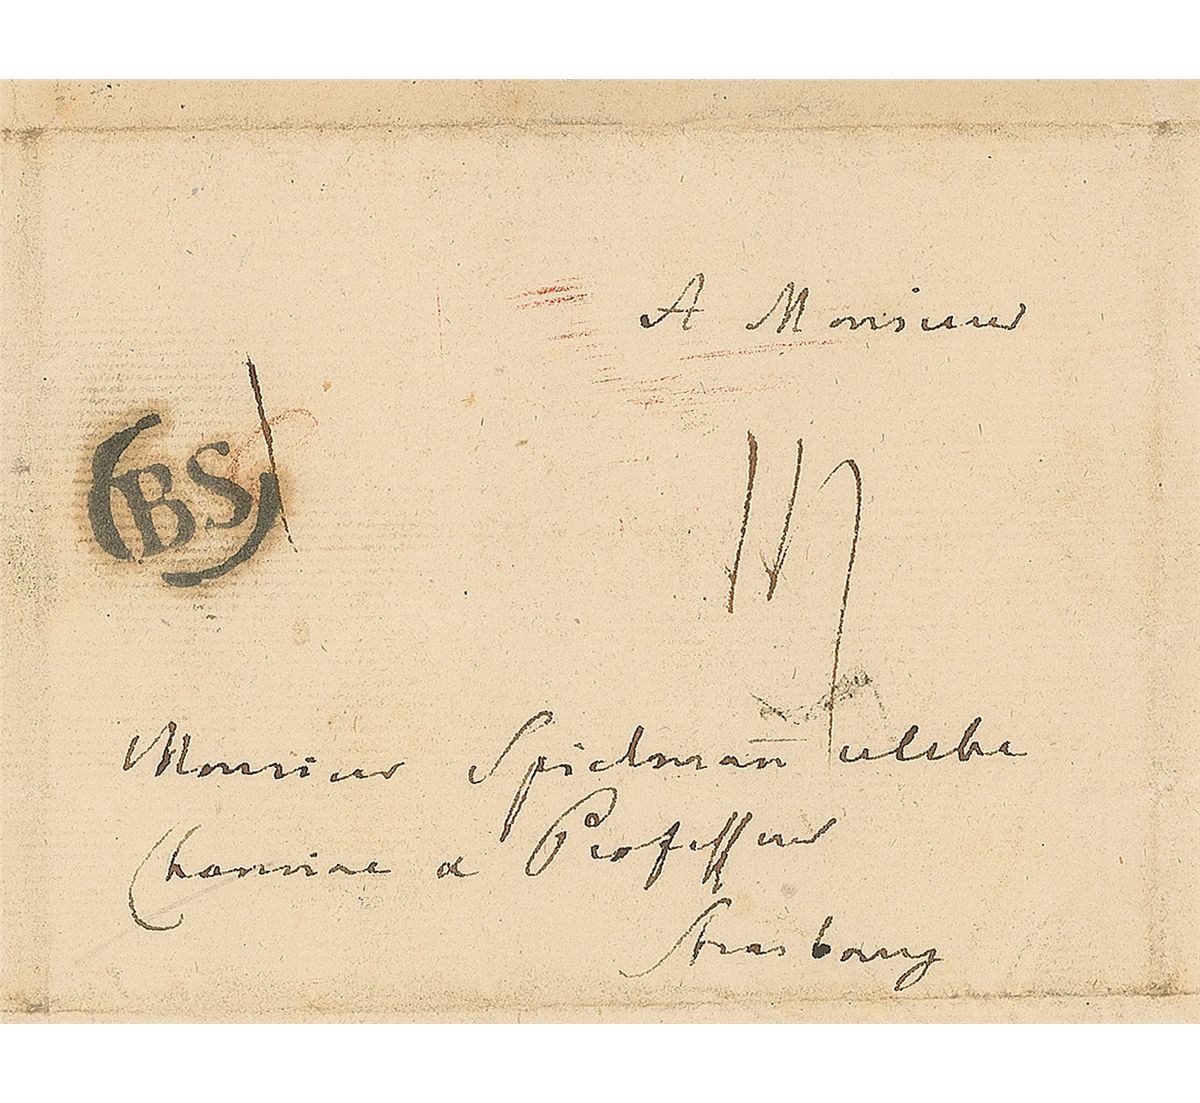 A Monsieur
BS
Monsieur Spielmann celebre
Chimiste a Professeur
Strasbourg